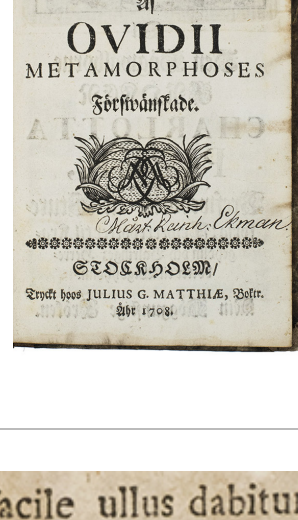 Af
OVIDII
METAMORPHOSES
Förswänskade.
Ekman.
STOCKHOLM/
Tryckt hoos JULIUS G. MATTHIÆ, Boktr.
Åhr 1708.
facile ullus dabitur